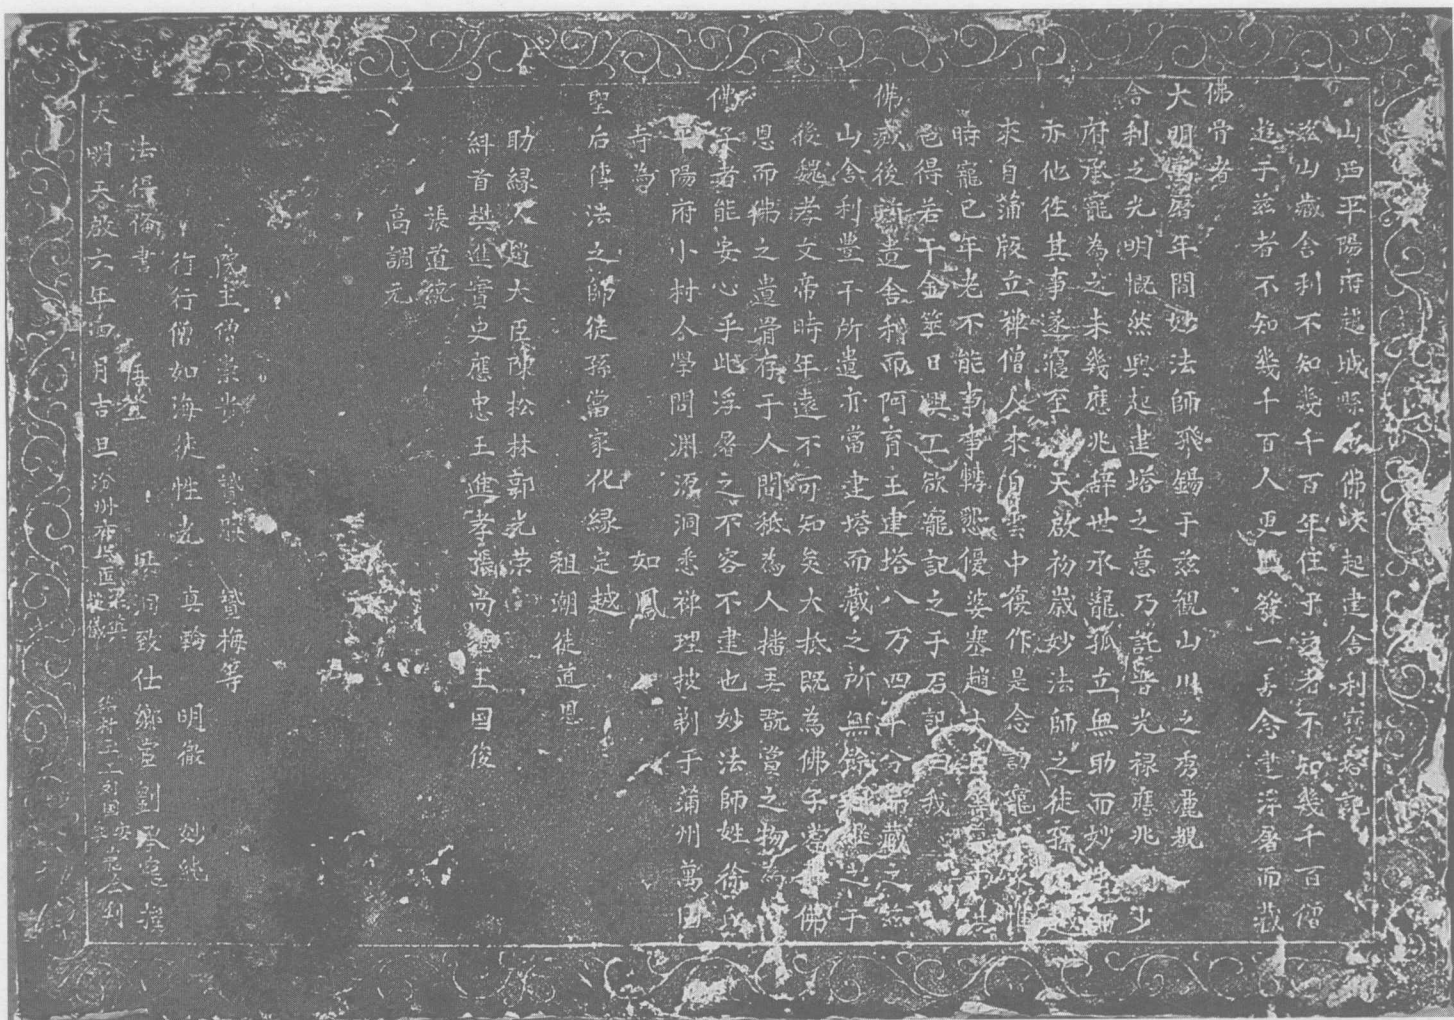 山西平陽府趙城縣 佛峽起建舍利寶塔記
茲山藏舍利不知幾千百年住于茲者不知幾千百僧
遊于茲者不知幾千百人更 發一善念建浮屠而藏
佛骨者
大明萬曆年間妙法師飛錫于茲觀山川之秀麗覩
舍利之光明慨然興起建塔之意乃託晉光祿應兆
府承寵為之未幾應兆辭世承寵孤立無助而妙
亦他徃其事遂寢至 天啟初嵗妙法師之徒孫
來自蒲版立禪僧人來自雲中復作是念 寵 惟
時寵已年老不能事事轉懇優婆塞趙大臣
邑得若干金筮日興工欲寵記之于石記曰我
佛滅後 遺舍利而阿育王建塔八万四千分而藏之茲
山舍利豐干所遺亦當建塔而藏之所無餘
後魏孝文帝時年遠不可知矣大抵既為佛子當 佛
恩而佛之遺骨存于人間秪為人播弄翫賞之物為
佛子者能安心乎此浮屠之不容不建也妙法師姓徐氏
平陽府小村人學問淵源洞悉禪理披剃于蒲州萬固
寺為 如鳳
聖后傳法之師徒孫當家化緣定越
祖潮徒道恩
助緣人趙大臣陳松林郭光榮
糾首樊進寶史應忠王進孝張尚 王国俊
張道統
高調元
院主僧崇步 贊梅等
行行僧如海徒性光 真輪 明徹 妙純
法得倫書 洪洞致仕鄉宦劉承寵撰
大明天啟六年四月吉旦汾州府 匠